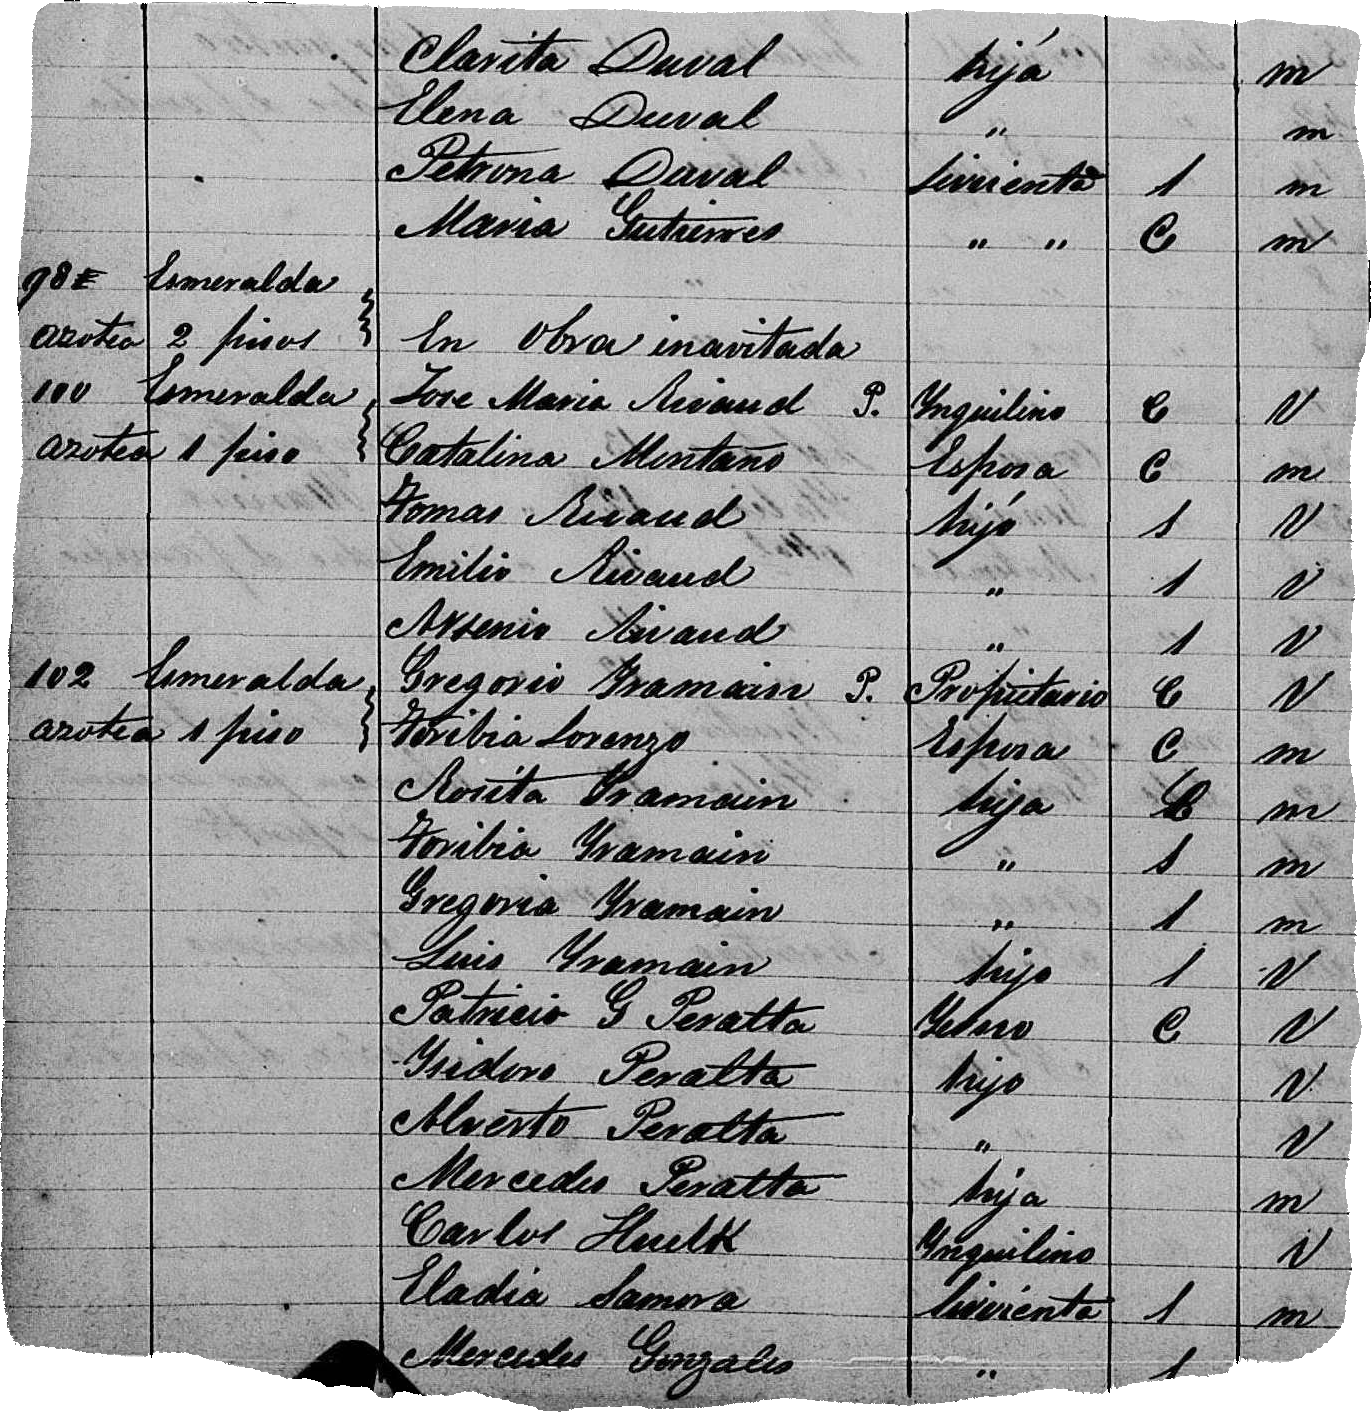 Clarita Duval hija m
Elena Duval " m
Petrona Duval sirvienta 1 m
Maria Gutierres " " C m
98 Esmeralda
azotea 2 pisos En obra inavitada
100 Esmeralda Jose Maria Rivaud P. Ynquilino C V
azotea 1 piso Catalina Montaño Esposa C m
Tomas Rivaud hijo s V
Emilio Rivaud " 1 V
Arsenio Rivaud " 1 V
102 Esmeralda Gregorio Yramain P. Propietario C V
azotea 1 piso Toribia Lorenzo Esposa C m
Rosita Yramain hija C m
Toribia Yramain " s m
Gregoria Yramain " 1 m
Luis Yramain hijo 1 V
Patricio G Peralta Yerno C V
Ysidoro Peralta hijo V
Alverto Peralta " V
Mercedes Peralta hija m
Carlos Huelk Ynquilino V
Eladia Samora sirvienta 1 m
Mercedes Gonzales " 1